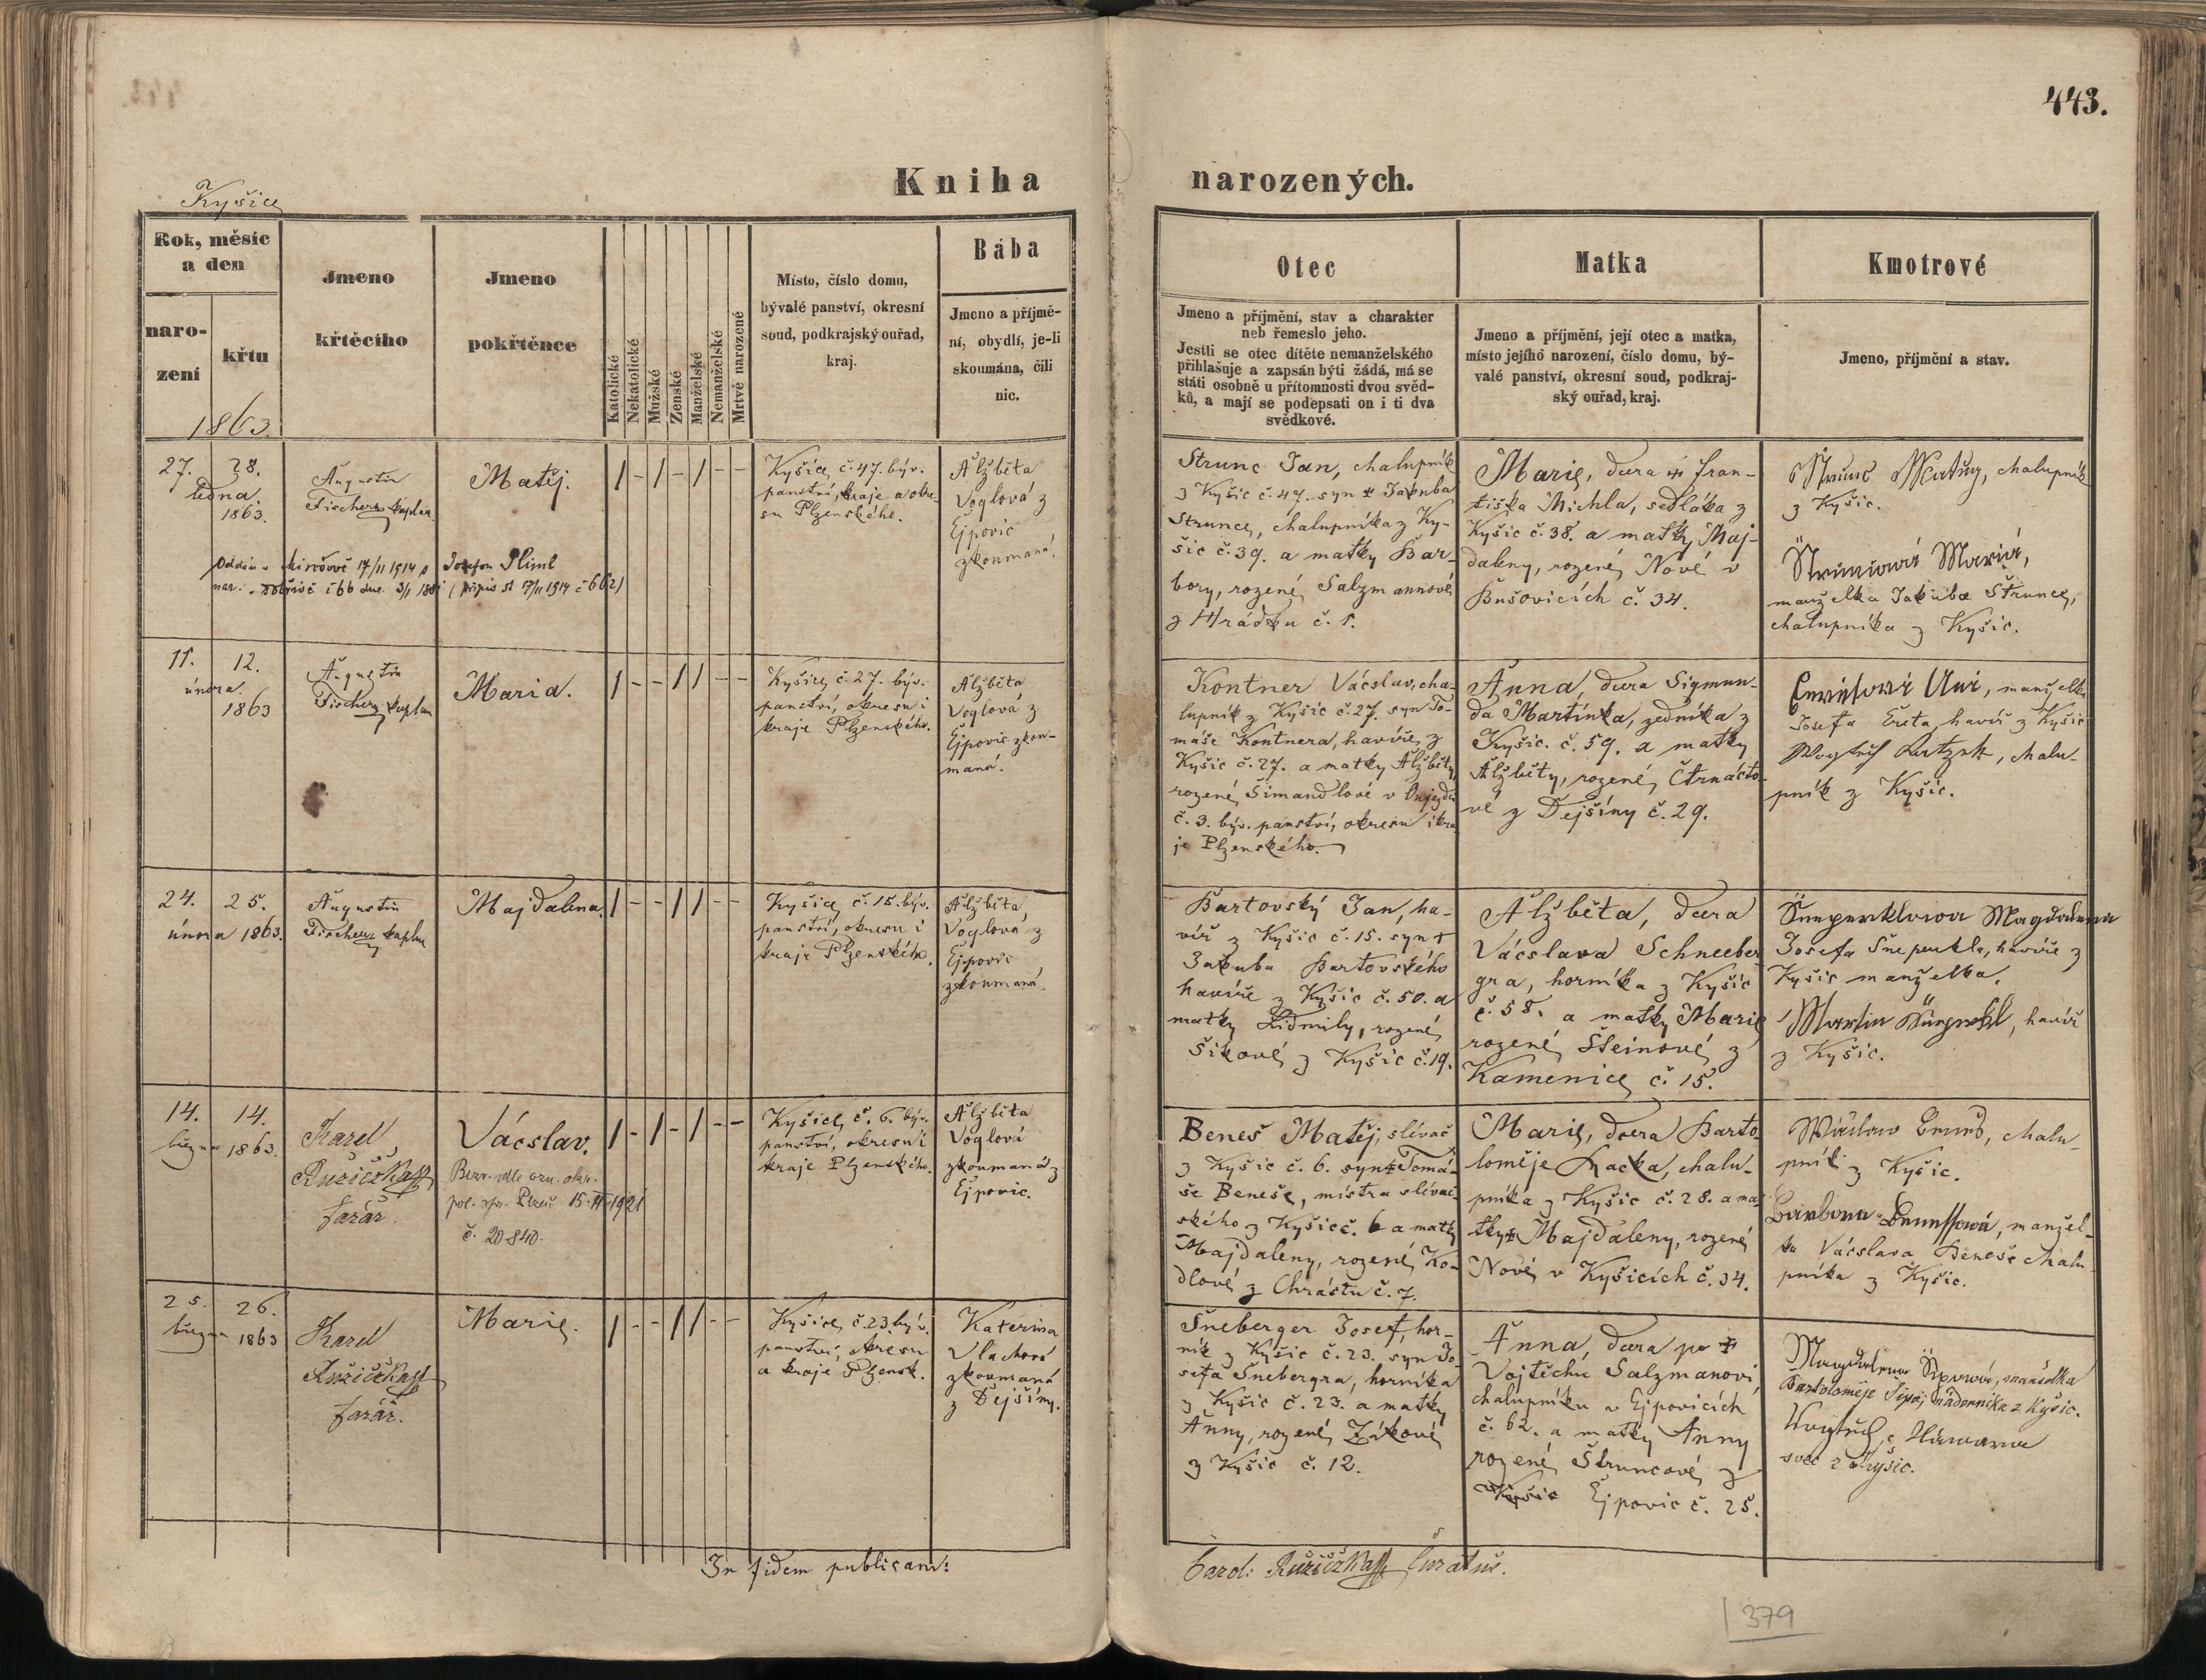 443.
Kniha narozených.
Kyšice
Rok, měsíc
a den
naro-
zení
křtu
1863.
Jmeno
křtěcího
Jmeno
pokřtěnce
Katolické
Nekatolické
Mužské
Zenské
Manželské
Nemanželské
Mrtvě narozené
Místo, číslo domu,
bývalé panství, okresní
soud, podkrajský ouřad,
kraj.
Bába
Jmeno a příjmě-
ní, obydlí, je-li
skoumána, čili
nic.
Otec
Jmeno a příjmění, stav a charakter
neb řemeslo jeho.
Jestli se otec dítěte nemanželského
přihlašuje a zapsán býti žádá, má se
státi osobně u přítomnosti dvou svěd-
ků, a mají se podepsati on i ti dva
svědkové.
Matka
Jmeno a příjmění, její otec a matka,
místo jejího narození, číslo domu, bý-
valé panství, okresní soud, podkraj-
ský ouřad, kraj.
Kmotrové
Jmeno, příjmění a stav.
27. 28.
ledna.
1863.
Augustin
Fischer kaplan
Matěj.
1 - 1 - 1 - -
Kyšice č. 47. býv.
panství, kraje a okre-
su Plzenského.
Alžběta
Voglová z
Ejpovic
zkoumaná.
Oddán v 17/II 1914 s Josefou
nar. č 66 dne 3/1 (přípis 17/II 1914 č 662)
Strunc Jan, chalupník
z Kyšic č. 47. syn † Jakuba
Strunce, chalupníka z Ky-
šic č. 39. a matky Bar-
bory, rozené Salzmannové
z Hrádku č. 1.
Marie, dcera † Fran-
tiška Michla, sedláka z
Kyšic č. 38. a matky Maj-
daleny, rozené Nové v
Bušovicích č. 34.
Strunc Matěj, chalupník
z Kyšic.
Struncová Maria,
manželka Jakuba Strunce,
chalupníka z Kyšic.
11. 12.
února.
1863
Augustin
Fischer kaplan
Maria.
1 - - 1 1 - -
Kyšice č. 27. býv.
panství, okresu i
kraje Plzenského.
Alžběta
Voglová z
Ejpovic zkou-
maná.
Kontner Vácslav, cha-
lupník z Kyšic č. 27. syn To-
máše Kontnera, havíře z
Kyšic č. 27. a matky Alžběty
rozené Šimandlové v
č. 3. býv. panství, okresu i kra
je Plzenského.
Anna, dcera Sigmun-
da Martínka, zedníka z
Kyšic. č. 59. a matky
Alžběty, rozené Čtrnácto-
vé z Dejšiny č. 29.
manželka
Josefa havíř z Kyšic
chalu-
pník z Kyšic.
24. 25.
února 1863.
Augustin
Fischer kaplan
Majdalena.
1 - - 1 1 - -
Kyšice č. 15. býv.
panství, okresu i
kraje Plzenského.
Alžběta
Voglová z
Ejpovic
zkoumaná.
Bartovský Jan, ha-
víř z Kyšic č. 15. syn †
Jakuba Bartovského
havíře z Kyšic č. 50. a
matky Lidmily, rozené
Šikové z Kyšic č. 19.
Alžběta, dcera
Vácslava Schneeber
gra, horníka z Kyšic
č. 58. a matky Marie
rozené Šteinové z
Kamenice č. 15.
Magdalena
Josefa havíře z
Kyšic manželka.
Martin havíř
z Kyšic.
14. 14.
března 1863.
Karel
Růžička
farář.
Vácslav.
1 - 1 - 1 - -
Bezv. dle ozn. okr.
pol. spr. Plzeň 15-II-1921
č. 20840.
Kyšice č. 6. býv.
panství, okresu i
kraje Plzenského.
Alžběta
Voglová
zkoumaná z
Ejpovic.
Beneš Matěj, slívač
z Kyšic č. 6. syn † Tomá-
še Beneše, mistra slívač-
ského z Kyšic č. 6 a matky
Majdaleny, rozené Ko-
dlové z Chrástu č. 7.
Marie, dcera Barto
loměje Racka, chalu-
pníka z Kyšic č. 28. a ma-
tky † Majdaleny, rozené
Nové v Kyšicích č. 34.
Václav Beneš, chalu
pník z Kyšic.
Barbora Benešová, manžel-
ka Vácslava Beneše chalu
pníka z Kyšic.
25. 26.
března 1863
Karel
Růžička
farář.
Marie.
1 - - 1 1 - -
Kyšice č. 23 býv.
panství, okresu
a kraje Plzensk.
Katerina
Vlachová
zkoumaná
z Dejšiny.
Šneberger Josef, hor-
ník z Kyšic č. 23. syn Jo-
sefa Šnebergra, horníka
z Kyšic č. 23. a matky
Anny, rozené Zíkové
z Kyšic č. 12.
Anna, dcera po †
Vojtěchu Salzmanovi
chalupníku v Ejpovicích
č. 62. a matky Anny
rozené Štruncové z
Kyšic Ejpovic č. 25.
Magdalena manželka
Bartoloměje nádenníka z Kyšic.
Vojtěch
švec z Kyšic.
In fidem publicam: Carol: Růžička Curatus.
379